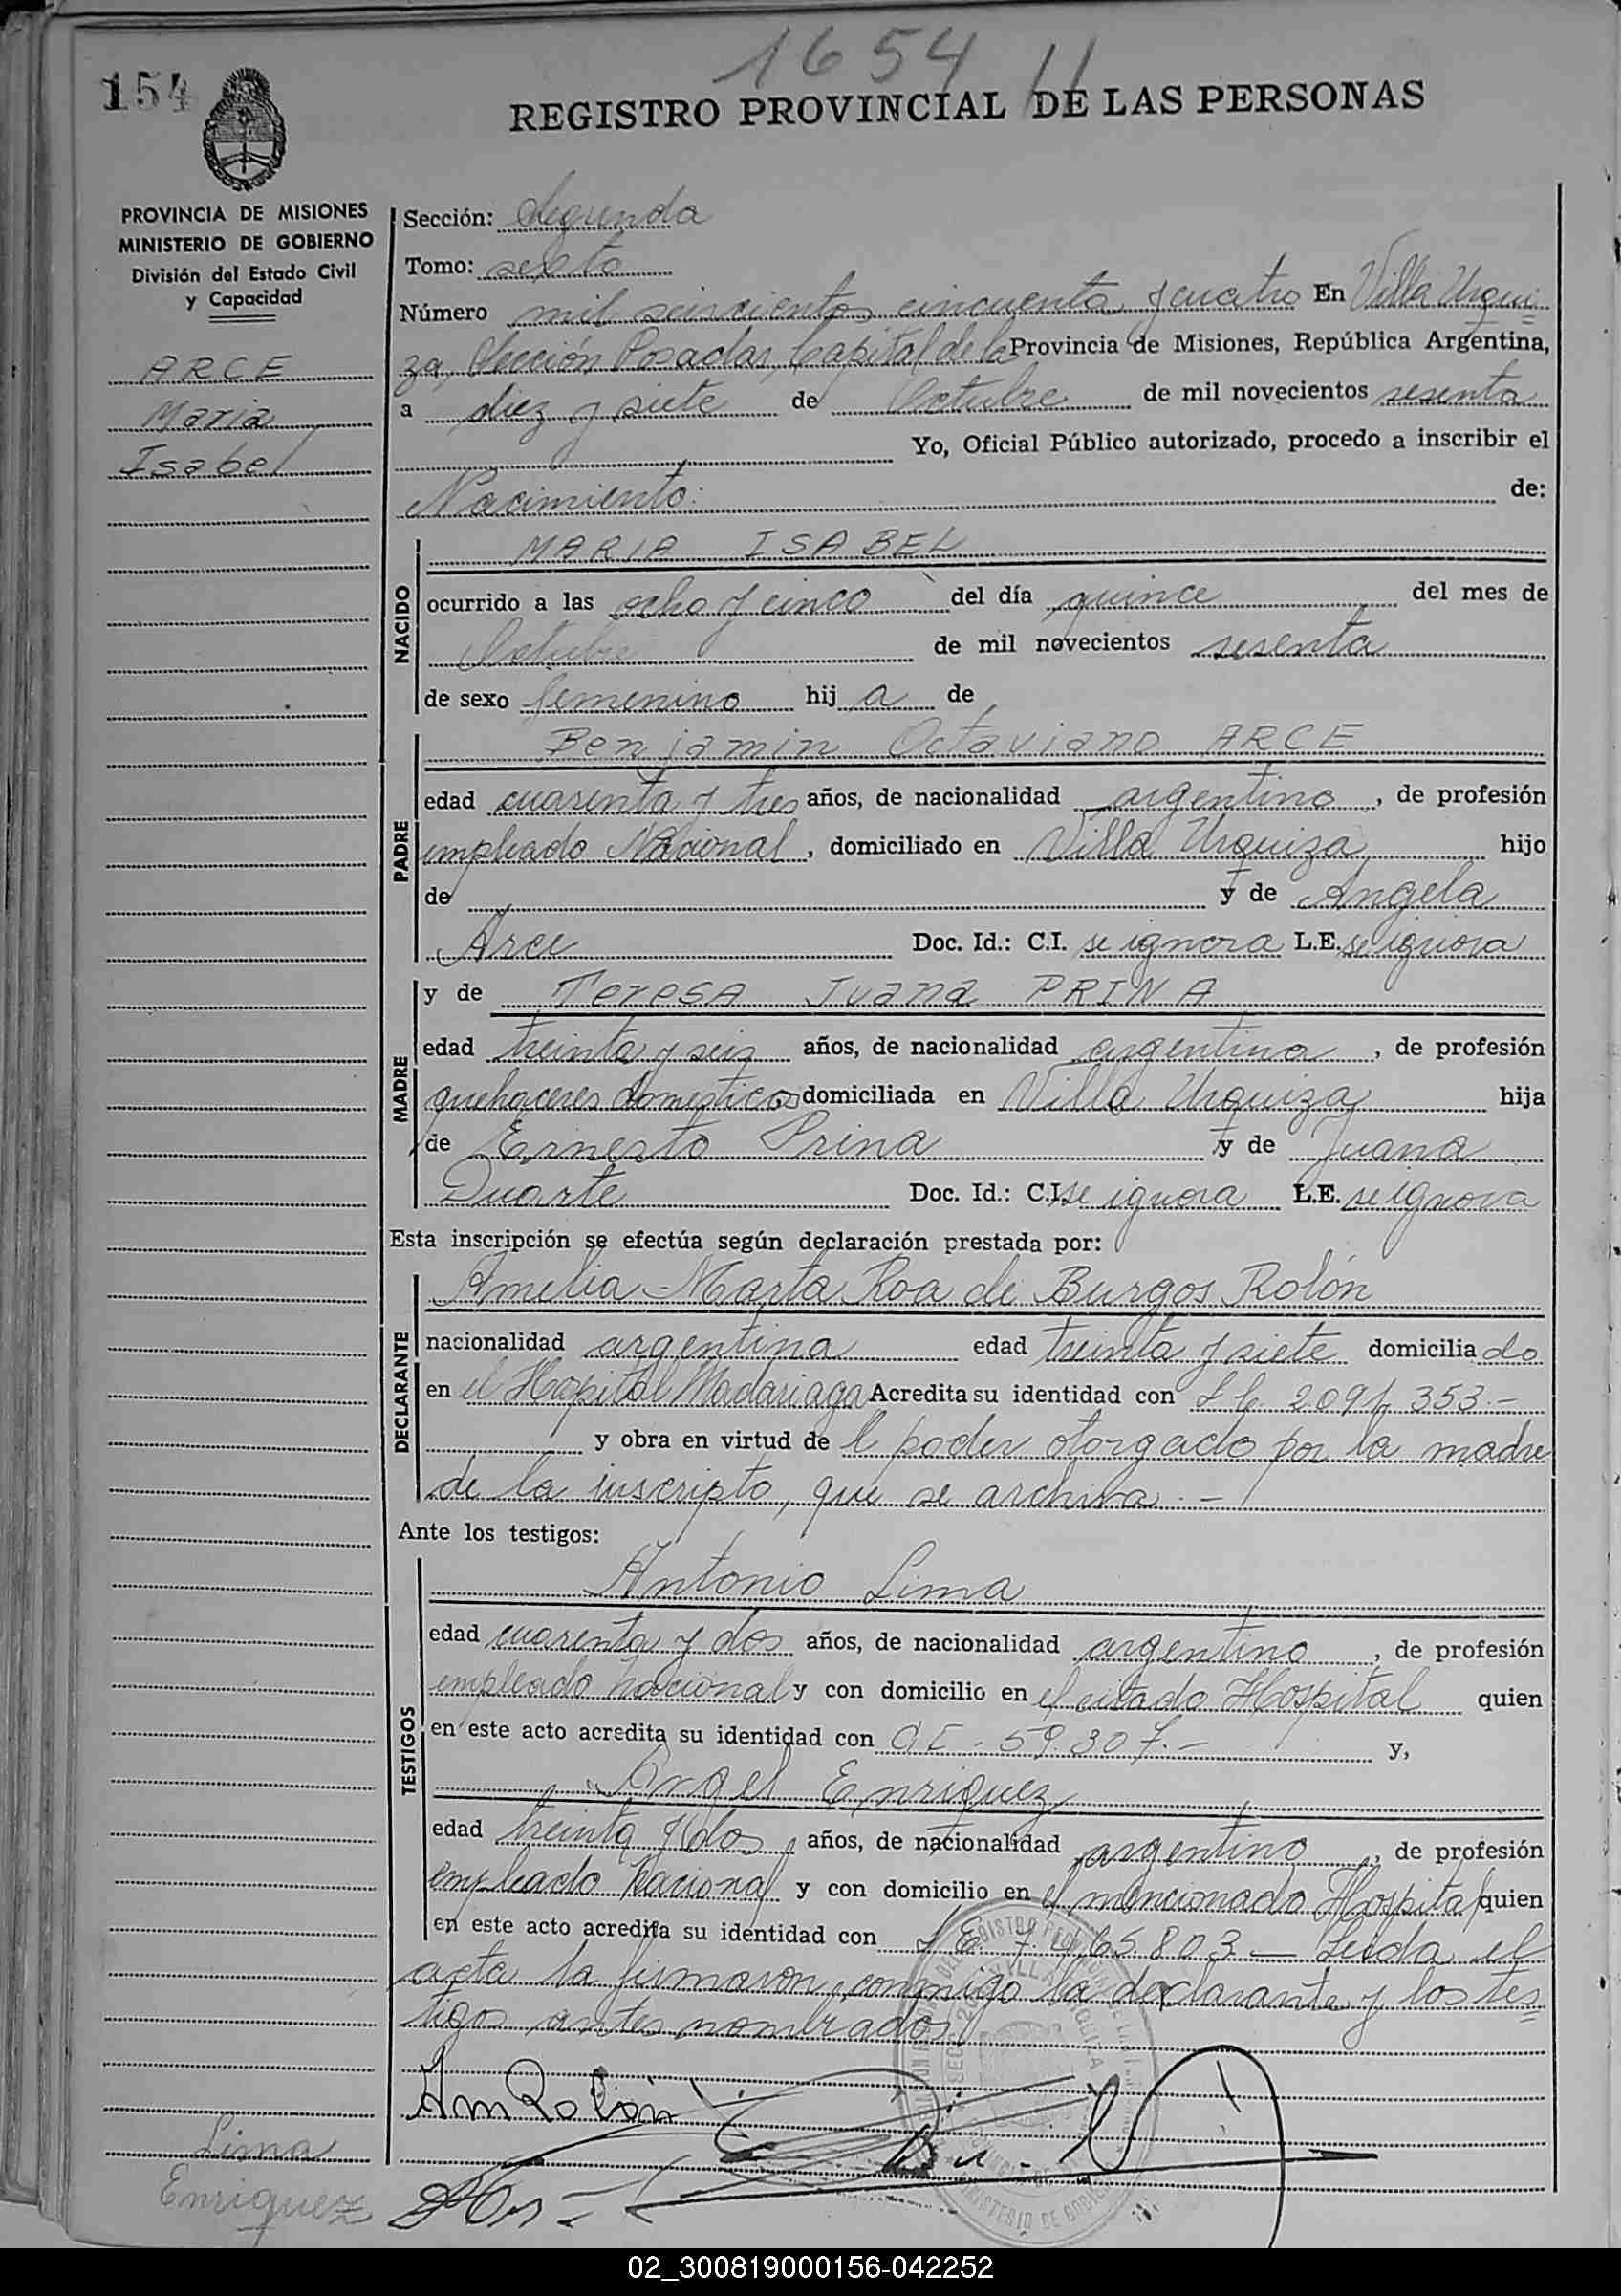 1654
154
REGISTRO PROVINCIAL DE LAS PERSONAS
PROVINCIA DE MISIONES
MINISTERIO DE GOBIERNO
División del Estado Civil
y Capacidad
ARCE
Maria
Isabel
Sección: Segunda
Tomo: sexto
Número mil seiscientos cincuenta y cuatro En Villa Urqui=
za, Sección Posadas, Capital de la Provincia de Misiones, República Argentina,
a diez y siete de Octubre de mil novecientos sesenta
Yo, Oficial Público autorizado, procedo a inscribir el
Nacimiento: de:
NACIDO
MARIA ISABEL
ocurrido a las ocho y cinco del día quince del mes de
Octubre de mil novecientos sesenta
de sexo femenino hij a de
PADRE
Benjamin Octaviano ARCE
edad cuarenta y tres años, de nacionalidad argentino, de profesión
empleado Nacional, domiciliado en Villa Urquiza hijo
de y de Angela
Arce Doc. Id.: C.I. se ignora L.E. se ignora
MADRE
y de Teresa Juana PRINA
edad treinta y seis años, de nacionalidad argentina, de profesión
quehaceres domesticos domiciliada en Villa Urquiza hija
de Ernesto Prina y de Juana
Duarte Doc. Id.: C.I. se ignora L.E. se ignora
Esta inscripción se efectúa según declaración prestada por:
DECLARANTE
Amelia Marta Roa de Burgos Rolón
nacionalidad argentina edad treinta y siete domicilia do
en el Hospital Madariaga Acredita su identidad con 353.-
y obra en virtud de l poder otorgado por la madre
de la inscripto, que se archiva.-
Ante los testigos:
TESTIGOS
Antonio Lima
edad cuarenta y dos años, de nacionalidad argentino, de profesión
empleado nacional y con domicilio en el citado Hospital quien
en este acto acredita su identidad con 59.307.- y,
Angel Enriquez
edad treinta y dos años, de nacionalidad argentino, de profesión
empleado Nacional y con domicilio en el mencionado Hospital quien
en este acto acredita su identidad con L.E. 7.465.803.- Leida el
acta la firmaron conmigo la declarante y los tes=
tigos antes nombrados
Am Rolón
Lima
Enriquez
02_300819000156-042252